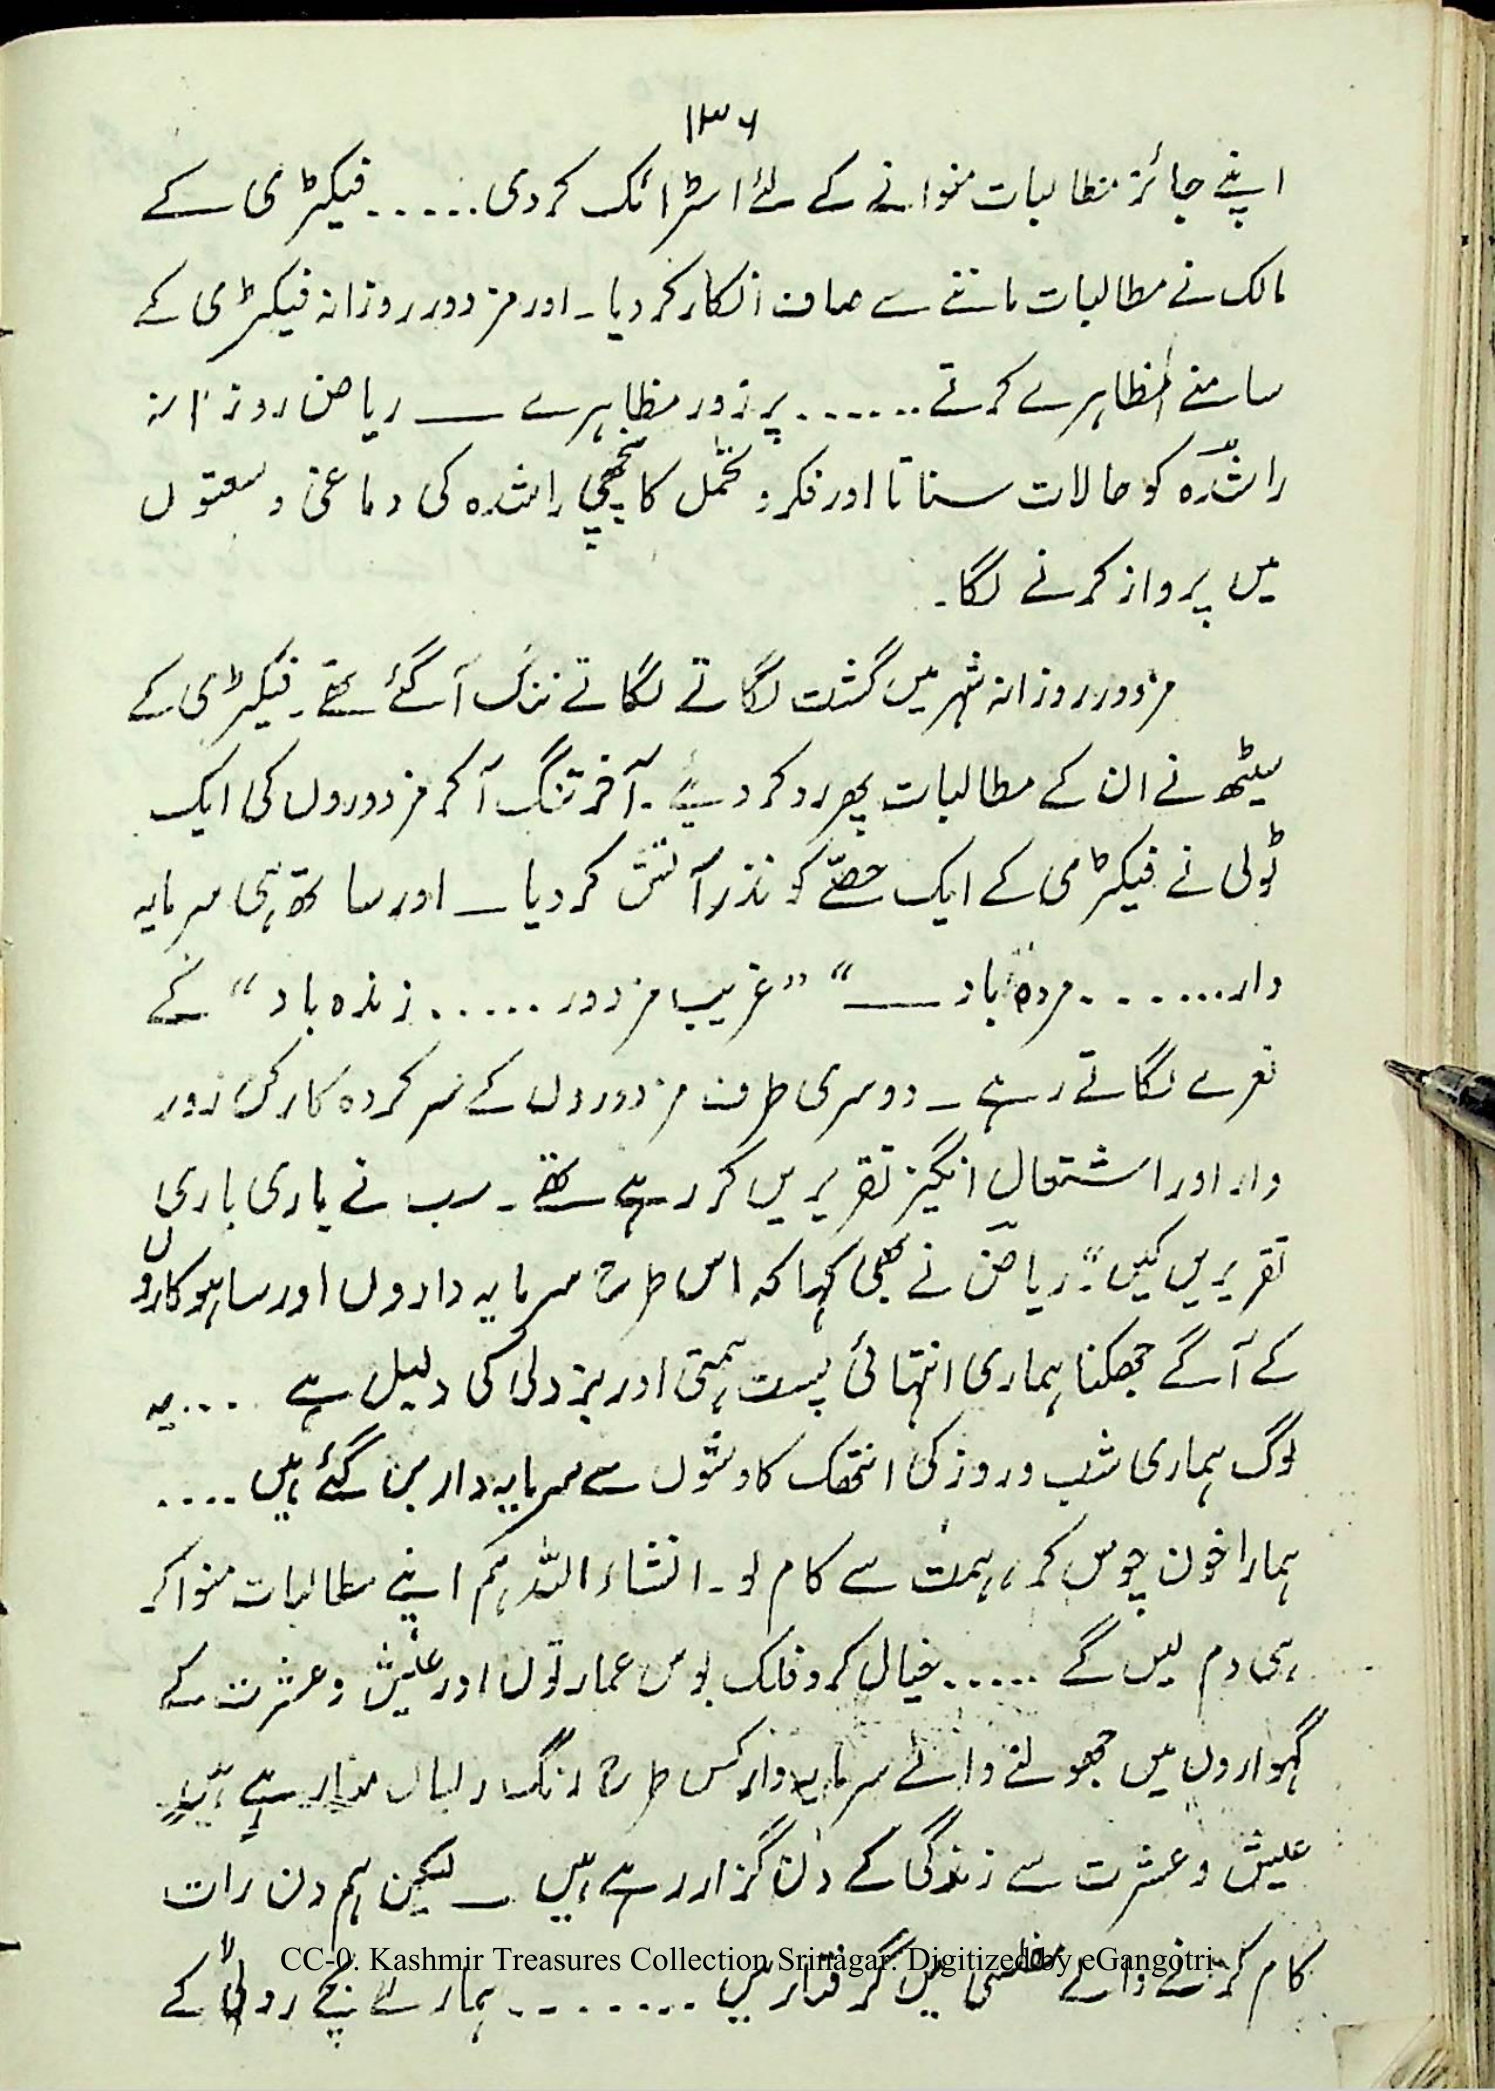 ۱۳۶
اپنے جائز مطالبات منوانے کے لئے اسٹرائک کر دی ...... فیکٹری کے
مالک نے مطالبات ماننے سے صاف انکار کر دیا ۔ اور مزدور روزانہ فیکٹری کے
سامنے مظاہرے کرتے ...... پر زور مظاہرے ـــ ریاض روزانہ
راشدہ کو حالات سناتا اور فکر و تخمل کا پنچھی راشدہ کی دماغی وسعتوں
میں پرواز کرنے لگا ۔
مزدور روزانہ شہر میں گشت لگاتے لگاتے تنگ آ گئے تھے ۔ فیکٹری کے
سیٹھ نے ان کے مطالبات پھر رد کر دیئے ۔ آخر تنگ آ کر مزدوروں کی ایک
ٹولی نے فیکٹری کے ایک حصّے کو نذر آتش کر دیا ـــ اور ساتھ ہی سرمایہ
دار ....... مردہ باد ـــ“ ”غریب مزدور ...... زندہ باد“ کے
نعرے لگاتے رہے ـ دوسری طرف مزدوروں کے سر کردہ کارکن زور
دار اور اشتعال انگیز تقریریں کر رہے تھے ۔ سب نے باری باری
تقریریں کیں“۔ ریاض نے بھی کہا کہ اس طرح سرمایہ داروں اور ساہوکاروں
کے آگے جھکنا ہماری انتہائی پست ہمتی اور بزدلی کی دلیل ہے .... یہ
لوگ ہماری شب و روز کی انتھک کاوشوں سے سرمایہ دار بن گئے ہیں ....
ہمارا خون چوس کر ، ہمت سے کام لو ۔ انشاء اللہ ہم اپنے مطالبات منوا کر
ہی دم لیں گے ...... خیال کرو فلک بوس عمارتوں اور عیش و عشرت کے
گہواروں میں جھولنے والے سرمایہ دار کس طرح رنگ رلیاں منا رہے ہیں
عیش و عشرت سے زندگی کے دن گزار رہے ہیں ـــ لیکن ہم دن رات
کام کرنے والے مفلسی میں گرفتار ہیں ........ ہمارے بچے روٹی کے
CC-0. Kashmir Treasures Collection Srinagar. Digitized by eGangotri